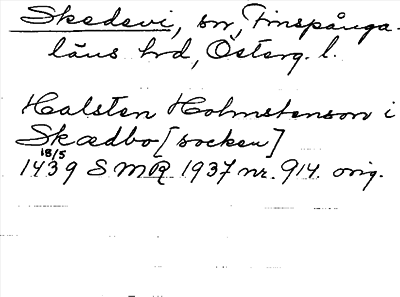 Skedevi, sn, Finspånga-
läns hrd, Österg. l.
Halsten Holmstensson i
Skædbo [socken]
18/5
1439 SMR 1937 nr. 914. orig.